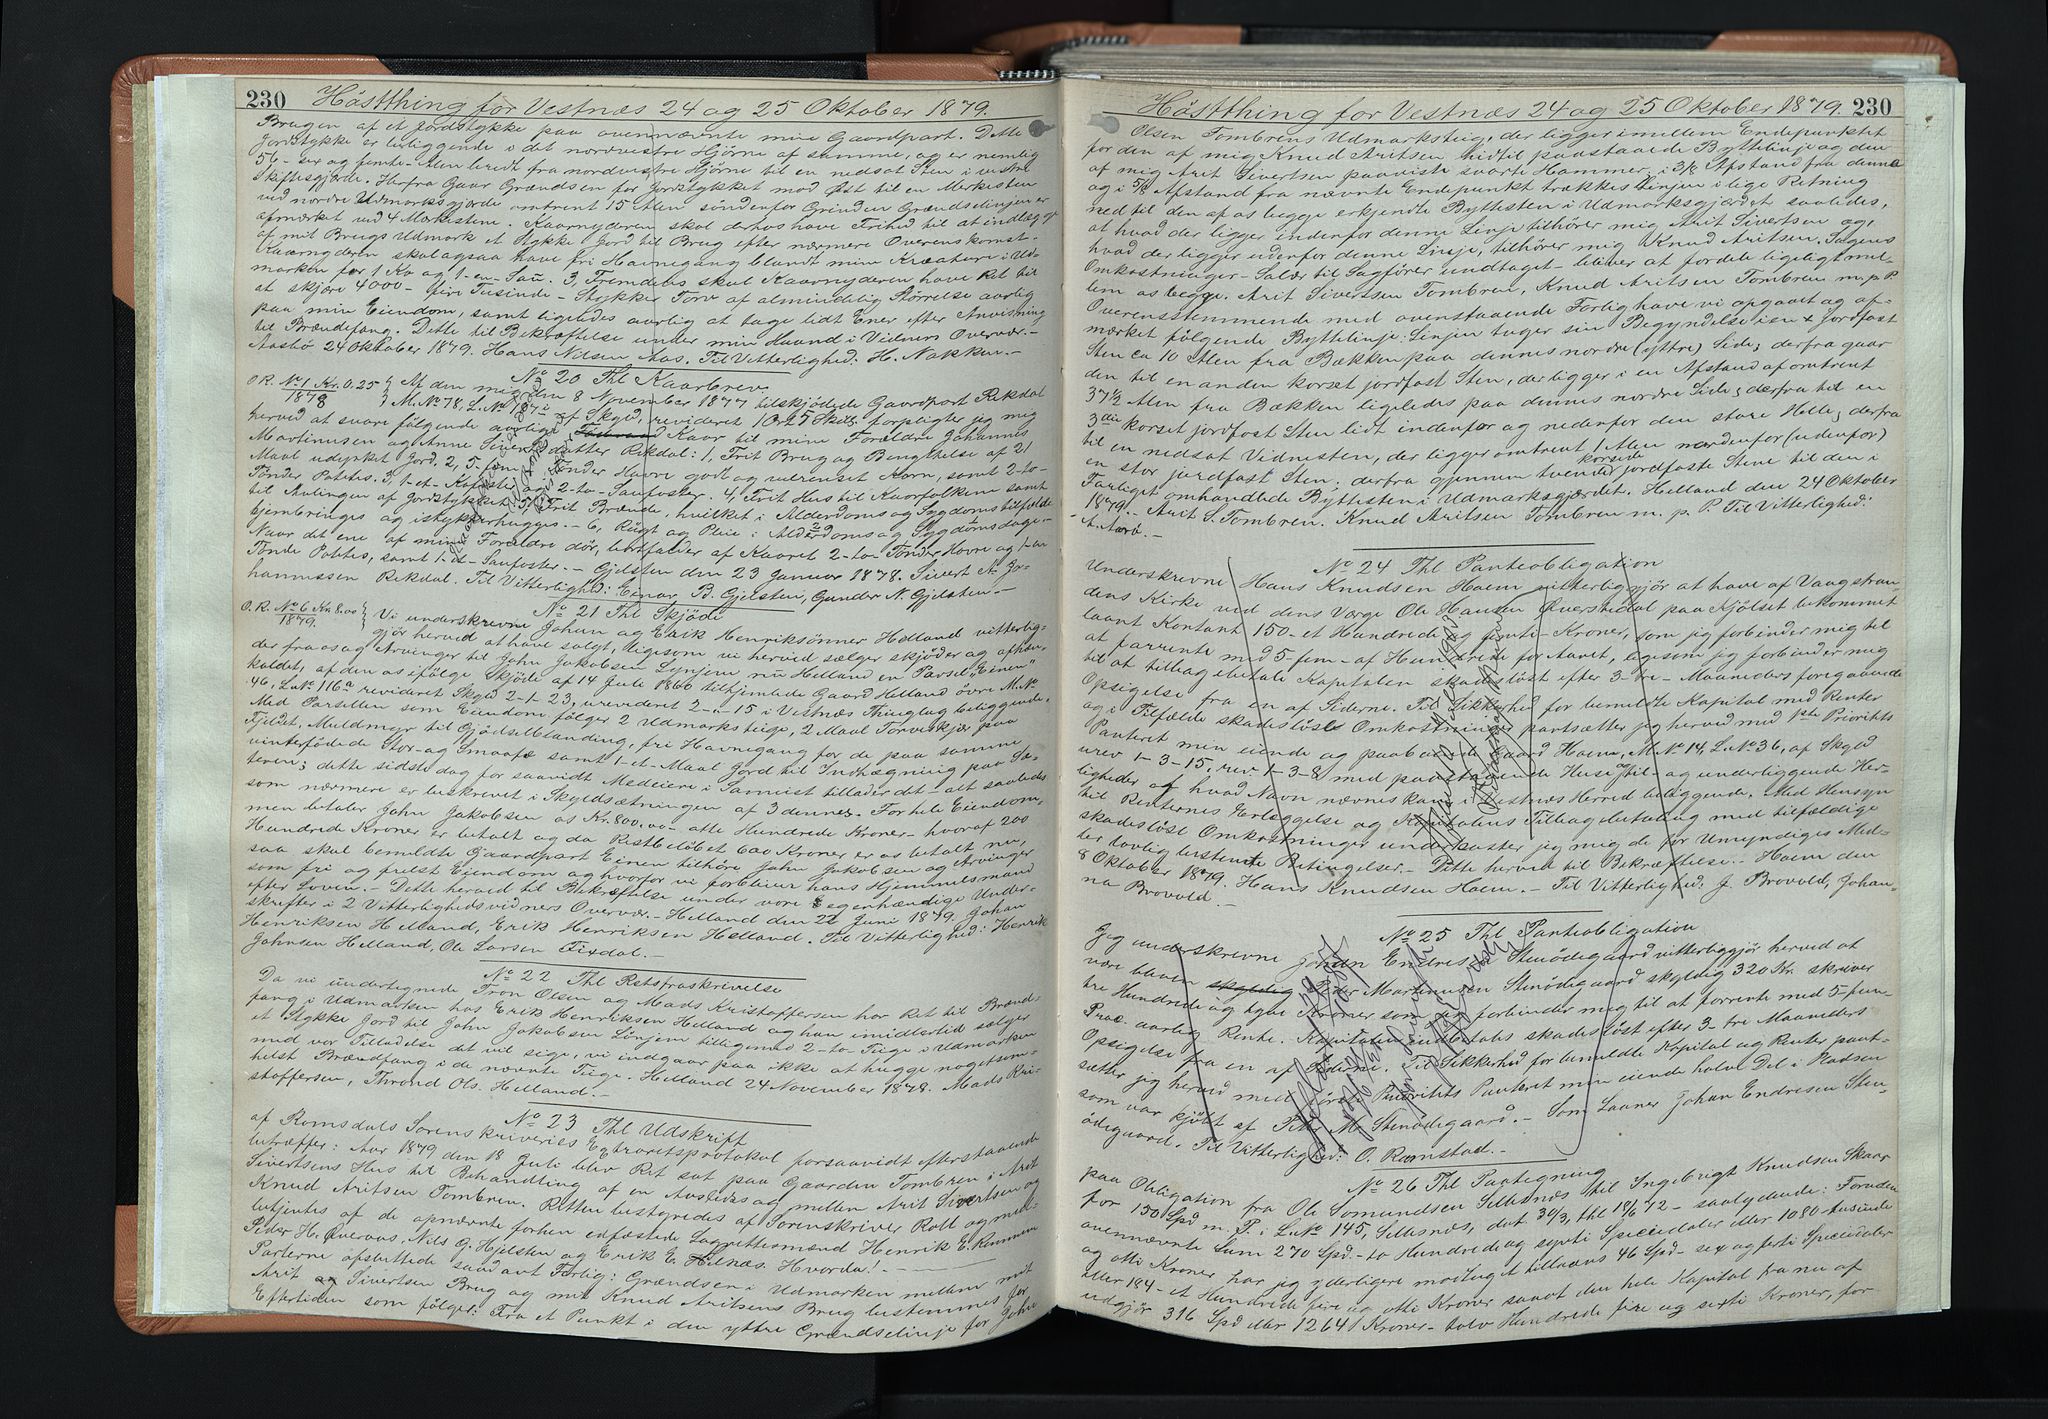 230 Høstthing for Vestnæs 24 og 25 Oktober 1879.
Brugen af et Jordstykke paa ovennævnte min Gaardpart. Dette
Jordstykke er beliggende i det nordvestre Hjørne af samme, og er nemlig
56 - sex og femti - Alen bredt fra nordvestre Hjørne til en nedsat Sten i vestre
Skiftesgjerde. Herfra Gaar Grændsen for Jordstykket mod Øst til en Merkesten
ved nordre Udmarksgjerde omtrent 15 Alen søndenfor Grinden Grændselinjen er
afmerket ved 4 Merkestene. Kaarnyderen skal derhos have Frihed til at indlægge
af mit Brugs Udmark et Stykke Jord til Brug efter nærmere Overenskomst.
Kaarnyderen skal ogsaa have fri Havnegang blandt mine Kreature i Ud-
marken for 1 Ko og 1 - en - Sau. 3, Fremdeles skal Kaarnyderen have Ret til
at skjære 4000 - fire Tusinde - Stykker Torv af almindelig Størrelse aarlig
paa min Eiendom, samt ligeledes aarlig at tage lidt Ener efter Anvisning
til Brændefang. Dette til Bekræftelse under min Haand i Vidners Overvær. -
Aasbø 24 Oktober 1879. Hans Nilsen Aas. Til Vitterlighed: H. Nakken. -
No 20 Thl Kaarbrev
O.R. No 1 Kr. 0.25 Af den mig den 8 November 1877 tilskjødede Gaardpart Rekdal
1878 M. No 78, L. No 187a af Skyld, revideret 1 Ort 5 Skill. forpligter jeg mig
herved at svare følgende aarlige Kaar til mine Forældre Johannes
Martinusen og Anne Siversdatter Rekdal: 1, Frit Brug og Benyttelse af 21
Maal udyrket Jord, 2, 5 - fem - Tønder Havre godt og velrenset Korn, samt 2 - to -
Tønder Potetes. 3, 1 - et - Kofoster og 2 - to - Saufoster. 4, Frit Hus til Kaarfolkene samt
til Avlingen af Jordstykket. 5, Frit Brænde, hvilket i Alderdoms og Sygdomstilfælde
hjembringes og istykkerhugges. - 6, Røgt og Pleie i Alderdoms og Sygdomsdage. -
Naar det ene af mine Forældre dør, bortfalder af Kaaret 2 - to - Tønder Havre og 1 - en
Tønde Potetes, samt 1 - et - Saufoster. - Gjelsten den 23 Januar 1878. Sivert A. Jo-
hannessen Rekdal. Til Vitterlighed: Einar B. Gjelsten, Gunder N. Gjelsten. -
No 21 Thl Skjøde
O.R. No 6 Kr. 8.00 Vi underskrevne Johan og Erik Henriksønner Helland vitterlig-
1879. gjør herved at have solgt, ligesom vi herved sælger skjøder og afhæn-
der fra os og Arvinger til John Jakobsen Lynjem nu Helland en Parsel, "Einen"
kaldet, af den os ifølge Skjøde af 14 Juli 1866 tilhjemlede Gaard Helland øvre M. No
46, L. No 116a revideret Skyld 2-1-23, urevideret 2-.-15 i Vestnæs Thinglag beliggende.
Med Parsellen som Eiendom følger 2 Udmarksteige, 2 Maal Torveskjær paa
Fjeldet, Muldmyr til Gjødselblanding, fri Havnegang for de paa samme
vinterfødede Stor- og Smaafæ samt 1 - et - Maal Jord til Indhægning paa Sæ-
teren; dette sidste dog for saavidt Medeiere i Sameiet tillader det - alt saaledes
som nærmere er beskrevet i Skyldsætningen af 3 dennes. For hele Eiendom-
men betaler John Jakobsen os Kr. 800.00 - otte Hundrede Kroner - hvoraf 200
Hundrede Kroner er betalt og da Restbeløbet 600 Kroner er os betalt nu,
saa skal bemeldte Gaardpart Einen tilhøre John Jakobsen og Arvinger
som fri og frelst Eiendom og hvorfor vi forbliver hans Hjemmelsmænd
efter Loven. - Dette herved til Bekræftelse under vore egenhændige Under-
skrifter i 2 Vitterlighedsvidners Overvær. - Helland den 22 Juni 1879. Johan
Henriksen Helland, Erik Henriksen Helland. Til Vitterlighed: Henrik
Johnsen Helland, Ole Larsen Fixdal. -
No 22 Thl Retsfraskrivelse
Da vi undertegnede Tron Olsen og Mads Kristoffersen har Ret til Brænd-
fang i Udmarken hos Erik Henriksen Helland og han imidlertid sælger
et Stykke Jord til John Jakobsen Lønjem tilligemed 2 - to - Teige i Udmarken
med vor Tilladelse det vil sige, vi indgaar paa ikke at hugge nogetsom-
helst Brændfang i de nævnte Teige. Helland 24 November 1878. Mads Kri-
stoffersen, Thrond Ols. Helland. -
No 23 Thl Udskrift
af Romsdals Sorenskriveries Extraretsprotokol forsaavidt efterstaaende
betræffer: Aar 1879 den 18 Juli blev Ret sat paa Gaarden Tombren i Arit
Sivertsens Hus til Behandling af en Aastedssag mellem Arit Sivertsen og
Knud Aritsen Tombren. Retten bestyredes af Sorenskriver Roll og med-
betjentes af de opnævnte forhen edfæstede Lagrettesmænd Henrik E. Remmem
Peder H. Øveraas, Nils G. Hjelsten og Erik E. Helnæs. Hvorda! -
Parterne afsluttede saadant Forlig: Grændsen i Udmarken mellem mit
Arit Sivertsen Brug og mit Knud Aritsens Brug bestemmes for
Eftertiden som følger: Fra et Punkt i den yttre Grændselinje for John
Høstthing for Vestnæs 24 og 25 Oktober 1879. 230
Olsen Tombrens Udmarksteig, der ligger imellem Endepunktet
for den af mig Knud Aritsen hidtil paastaaede Byttelinje og den
af mig Arit Sivertsen paaviste svarte Hammer, i 3/8 Afstand fra denne
og i 5/8 Afstand fra nævnte Endepunkt trækkes Linjen i lige Retning
ned til den af os begge erkjendte Byttesten i Udmarksgjærdet saaledes,
at hvad der ligger indenfor denne Linje tilhører mig Arit Sivertsen og,
hvad der ligger udenfor denne Linje, tilhører mig Knud Aritsen. Sagens
Omkostninger - Salær til Sagfører undtaget - bliver at fordele ligeligt mel-
lem os begge. Arit Sivertsen Tombren, Knud Aritsen Tombren m. p. P.
Overensstemmende med ovenstaaende Forlig have vi opgaaet og af-
mærket følgende Byttelinje: Linjen tager sin Begyndelse i en x Jordfast
Sten ca 10 Alen fra Bækken paa dennes nordre (yttre) Side; derfra gaar
den til en anden korset jordfast Sten, der ligger i en Afstand af omtrent
37 1/2 Alen fra Bækken ligeledes paa dennes nordre Side; derfra til en
3die korset jordfast Sten lidt indenfor og nedenfor den store Helle; derfra
til en nedsat Vidnesten, der ligger omtrent 1 Alen nordenfor (udenfor)
en stor jordfast Sten; derfra gjennem tvende korsede jordfaste Stene til den i
Forliget omhandlede Byttesten i Udmarksgjærdet. Helland den 24 Oktober
1879. Arit S. Tombren. Knud Aritsen Tombren m. p. P. Til Vitterlighed:
A. Aarø. -
No 24 Thl Panteobligation
Underskrevne Hans Knudsen Haem vitterliggjør at have af Vaagstran-
dens Kirke ved dens Værge Ole Hansen Øverstedal paa Kjølset bekommet
laant Kontant 150 - et Hundrede og femti - Kroner, som jeg forbinder mig til
at forrente med 5 - fem - af Hundrede for Aaret, ligesom jeg forbinder mig
til at tilbagebetale Kapitalen skadesløst efter 3 - tre - Maaneders foregaaende
Opsigelse fra en af Siderne. Til Sikkerhed for bemeldte Kapital med Renter
og i Tilfælde skadesløse Omkostninger pantsætter jeg herved med 1ste Prioritets
Panteret min eiende og paaboende Gaard Haem, M. No 14, L. No 36, af Skyld
urev 1-3-15, rev. 1-3-8 med paastaaende Huse og til- og underliggende Her-
ligheder af hvad Navn nævnes kan i Vestnæs Herred beliggende. Med Hensyn
til Renternes Erlæggelse og Kapitalens Tilbagebetaling med tilfældige
skadesløse Omkostninger underkaster jeg mig de for Umyndiges Med-
ler lovlig bestemte Betingelser. - Dette herved til Bekræftelse. - Haem den
8 Oktober 1879. Hans Knudsen Haem. - Til Vitterlighed: J. Brovold, Johan-
na Brovold. -
No 25 Thl Panteobligation
Jeg underskrevne Johan Endresen Stenødegaard vitterliggjør herved at
være bleven skyldig Peder Martinusen Stenødegaard skyldig 320 Kr. skriver
tre Hundrede og tyve Kroner som jeg forbinder mig til at forrente med 5 - fem -
Proc. aarlig Rente. Kapitalen indbetales skadesløst efter 3 - tre Maaneders
Opsigelse fra en af Siderne. Til Sikkerhed for bemeldte Kapital og Renter pant-
sætter jeg herved med første Prioritets Panteret min eiende halve Del i Pladsen
som var kjøbt af Peter M. Stenødegaard. - Som Laaner Johan Endresen Sten-
ødegaard. Til Vitterlighed: O. Ramstad. -
No 26 Thl Paategning
paa Obligation fra Ole Somundsen Sellesnæs til Ingebrigt Knudsen Skaar
for 150 Spd m. P. i L. No 145, Sellesnæs, dat 30/3, thl 19/6 72 - saalydende: Foruden
ovennævnte Sum 270 Spd. - to Hundrede og sytti Speciedaler eller 1080 - tusinde
og otti Kroner har jeg yderligere modtaget tillaans 46 Spd - sex og førti Speciedaler
eller 184 - et Hundrede fire og otti Kroner saa at den hele Kapital fra nu af
udgjør 316 Spd eller 1264 Kroner - tolv Hundrede fire og sexti Kroner, for